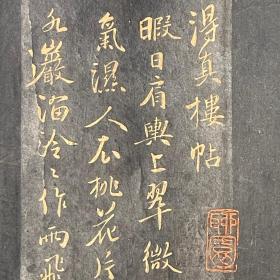 淂真樓帖
暇日肩輿上翠微
氣濕人衣桃花片
水巖溜泠〻作雨飛